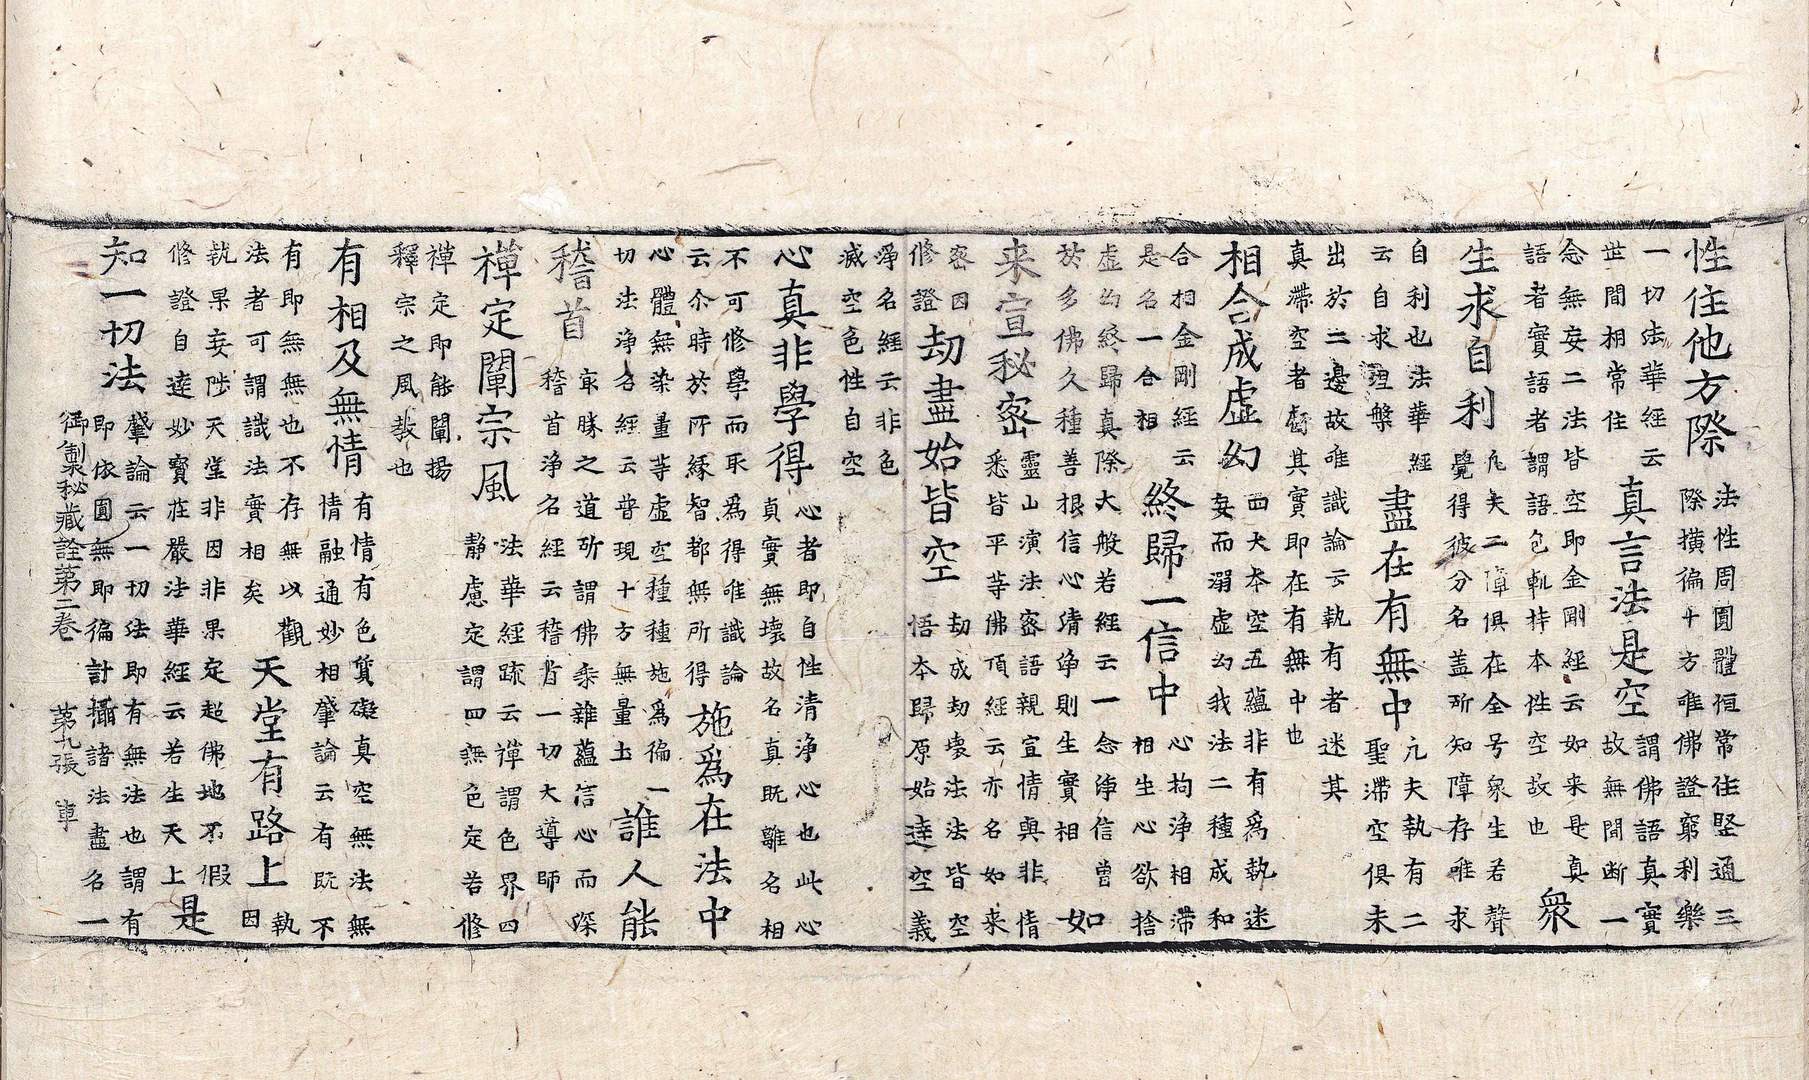 性住他方際
法性周圓體恒常住堅通三
際橫徧十方唯佛證窮利樂
一切法華經云
世間相常住
真言法是空
謂佛語真實
故無間斷一
念無妄二法皆空即金剛經云如来是真
語者實語者謂語包軌持本性空故也
衆
生求自利
凢夫二障俱在全号衆生若聲
覺得彼分名盖所知障存唯求
自利也法華經
云自求涅槃
盡在有無中
凢夫執有二
聖滯空俱未
出於二邊故唯識論云執有者迷其
真滯空者其實即在有無中也
相合成虚幻
四大本空五藴非有爲執迷
妄而溺虚幻我法二種成和
合相金剛經云
是名一合相
終歸一信中
心拘浄相滯
相生心欲捨
虚幻終歸真際大般若經云一念浄信曾
於多佛久種善根信心清浄則生實相
如
来宣秘密
靈山演法密語親宣情與非情
悉皆平等佛頂經云亦名如来
密因
修證
劫盡始皆空
劫成劫壊法法皆空
悟本歸原始達空義
浄名經云非色
滅空色性自空
心真非學得
心者即自性清浄心也此心
真實無壊故名真既離名相
不可修學而取爲得唯識論
云尒時於所縁智都無所得
施爲在法中
心體無染量等虚空種種施爲徧一
切法浄名經云普現十方無量土
誰人能
稽首
最勝之道所謂佛乘雜藴信心而深
稽首浄名經云稽首一切大導師
禅定闡宗風
法華經疏云禅謂色界四
静慮定謂四無色定若修
禅定即能闡揚
釋宗之風教也
有相及無情
有情有色質礙真空無法無
情融通妙相肇論云有既不
有即無無也不存無以觀
法者可謂識法實相矣
天堂有路上
執
因
執果妄陟天堂非因非果定超佛地不假
修證自達妙寳莊嚴法華經云若生天上
是
知一切法
肇論云一切法即有無法也謂有
即依圓無即徧計攝諸法盡名一
御製秘藏詮第二卷 第九張 車